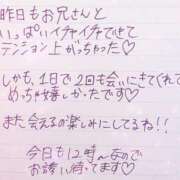 昨日もお兄さんと
いっぱいイチャイチャできて
テンション上がっちゃった♡
しかも、1日で2回も会いにきてくれて
めっちゃ嬉しかったです♡
また会えるの楽しみにしてるね!!
今日も12時〜なので
お誘い待ってます♡